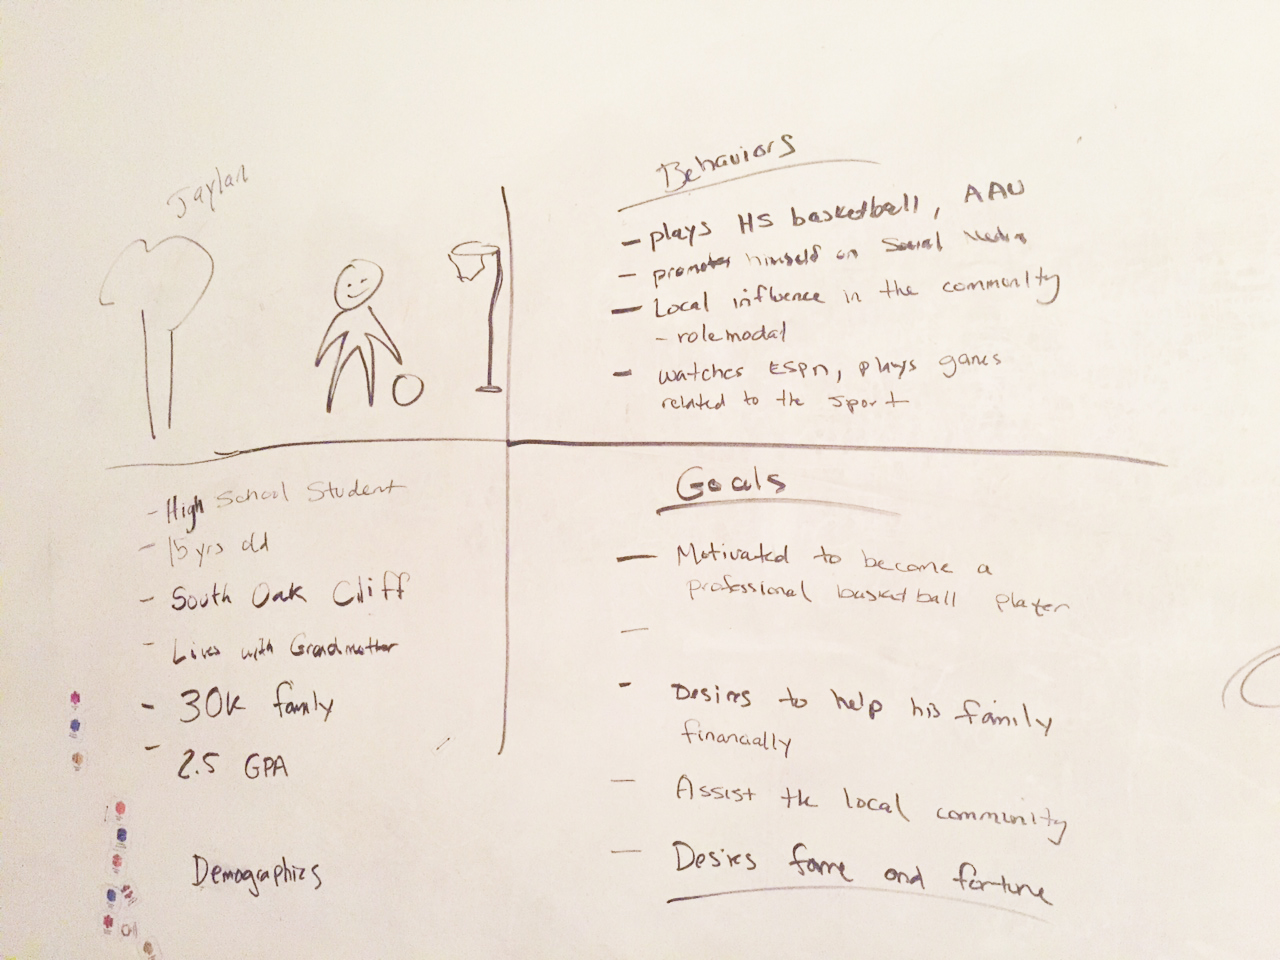 Jaylan
Behaviors
- plays HS basketball, AAU
- promotes himself on Social Media
- Local influence in the community
- role modal
- watches ESPN, plays games
related to the sport
- High School Student
- 15 yrs old
- South Oak Cliff
- Lives with Grandmother
- 30k family
- 2.5 GPA
Demographics
Goals
- Motivated to become a
professional basketball player
-
- Desires to help his family
financially
- Assist the local community
- Desires fame and fortune